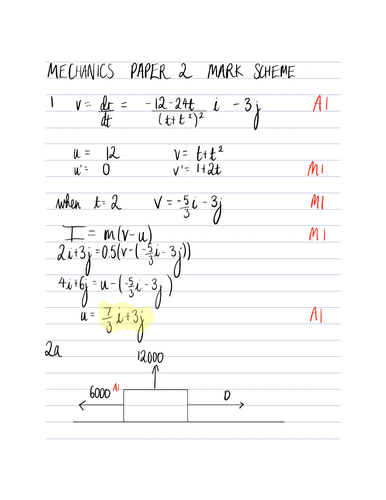 MECHANICS PAPER 2 MARK SCHEME
1 v = dr/dt = (-12-24t)/(t+t²)² i - 3j A1
u = 12 v = t+t²
u' = 0 v' = 1+2t M1
when t=2 v = -5/3 i - 3j M1
I = m(v-u) M1
2i+3j = 0.5(v-(-5/3 i - 3j))
4i+6j = u-(-5/3 i - 3j)
u = 7/3 i + 3j A1
2a
12000
6000 A1 D